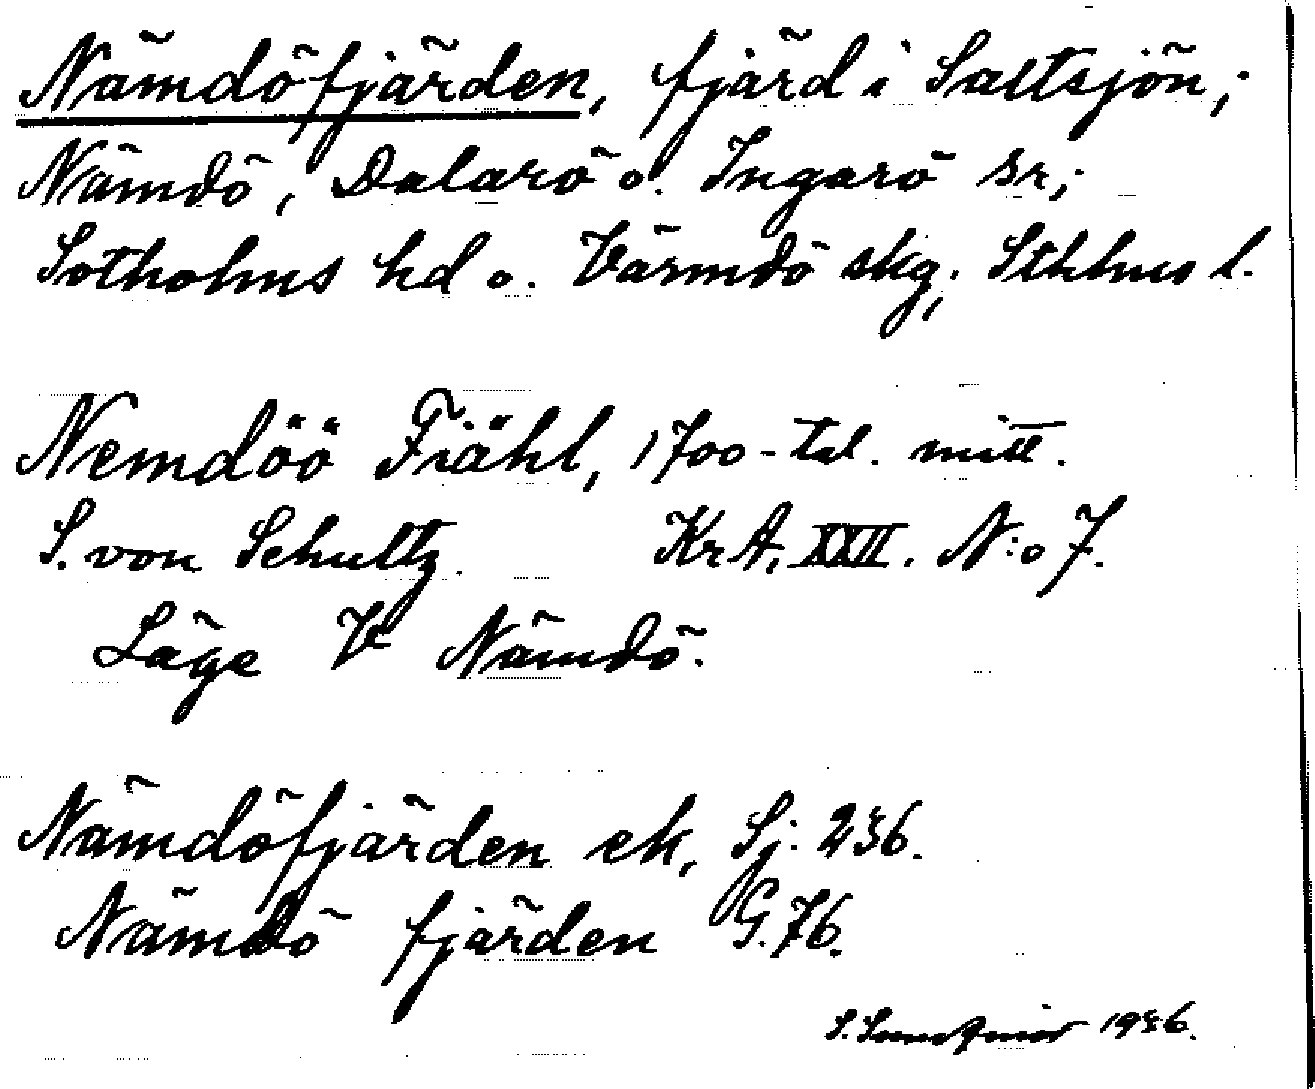 Nämdöfjärden, fjärd i Saltsjön;
Nämdö, Dalarö o. Ingarö sr;
Sotholms hd o. Värmdö skg; Sthlms l.
Nemdöö Fiähl, 1700-tal. mitt.
S. von Schultz. KrA, XXII. N:o 7.
Läge V Nämdö.
Nämdöfjärden ek, Sj. 236.
Nämdö fjärden G. 76.
S. 1936.